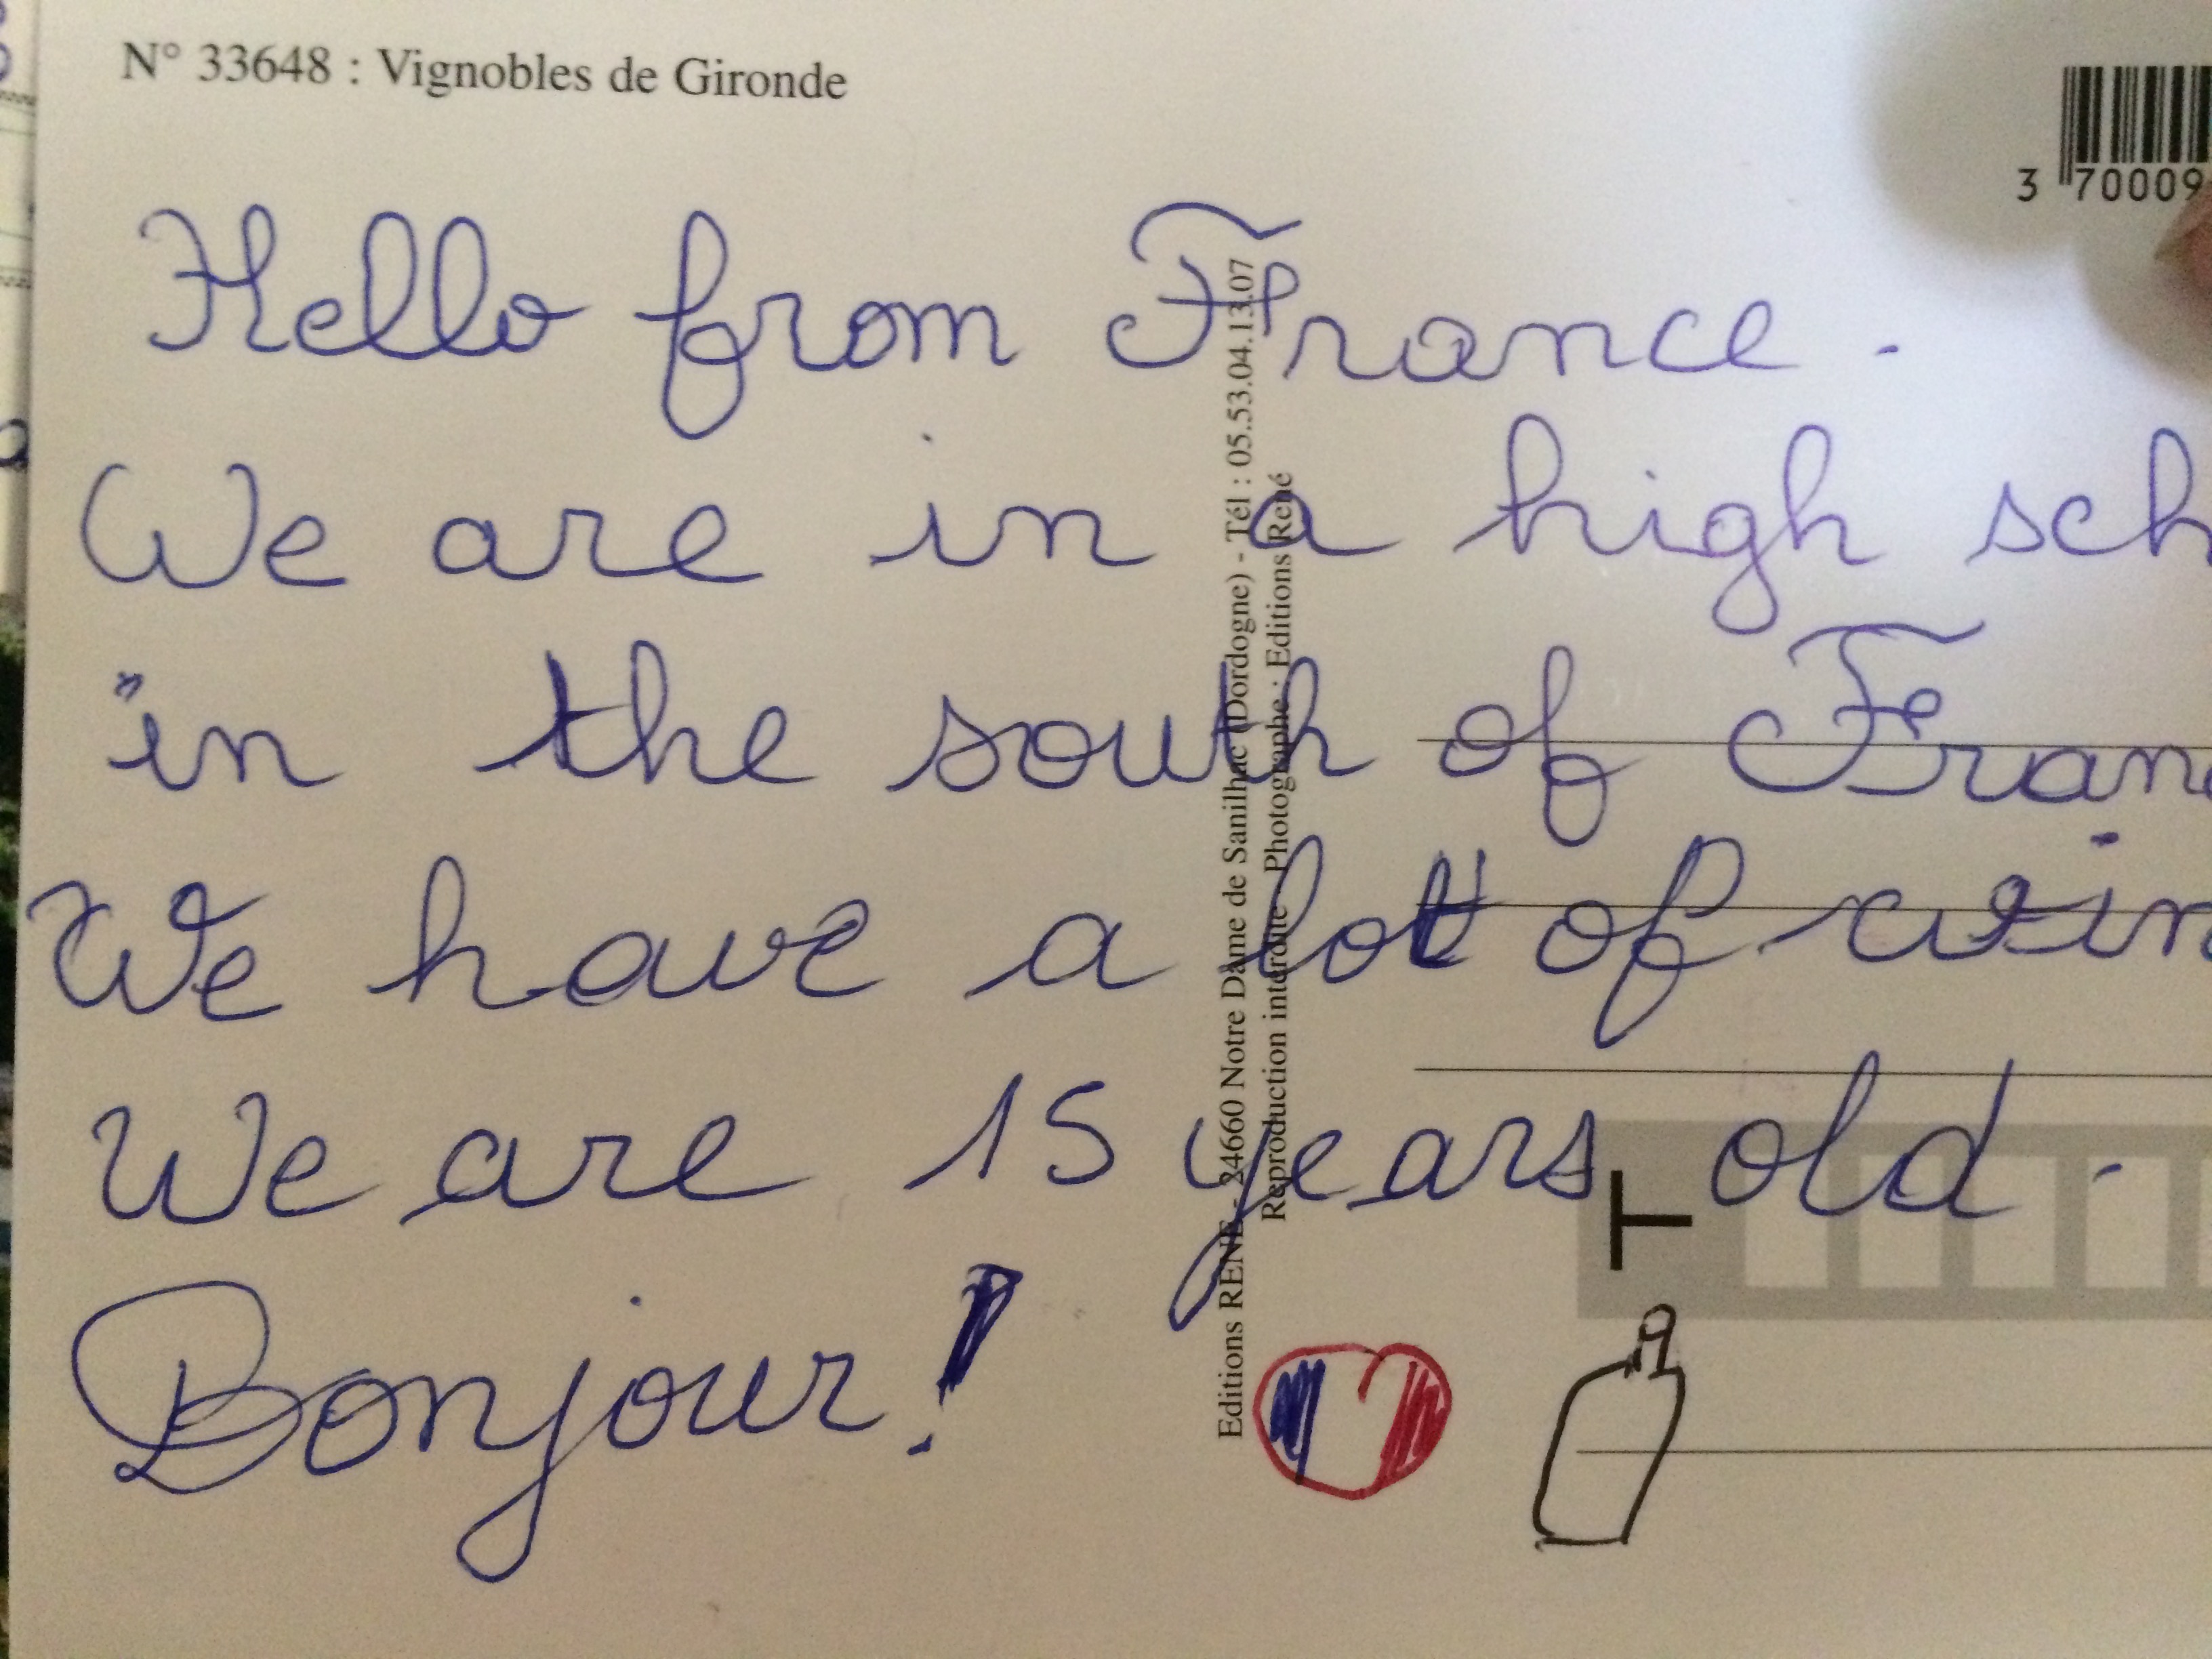 N° 33648 : Vignobles de Gironde
3 70009
Hello from France.
We are in a high sch
in the south of Franc
We have a lot of win
We are 15 years old.
Bonjour!
Editions RENE - 24660 Notre Dame de Sanilhac (Dordogne) - Tél : 05.53.04.13.07
Reproduction interdite Photographe : Editions René